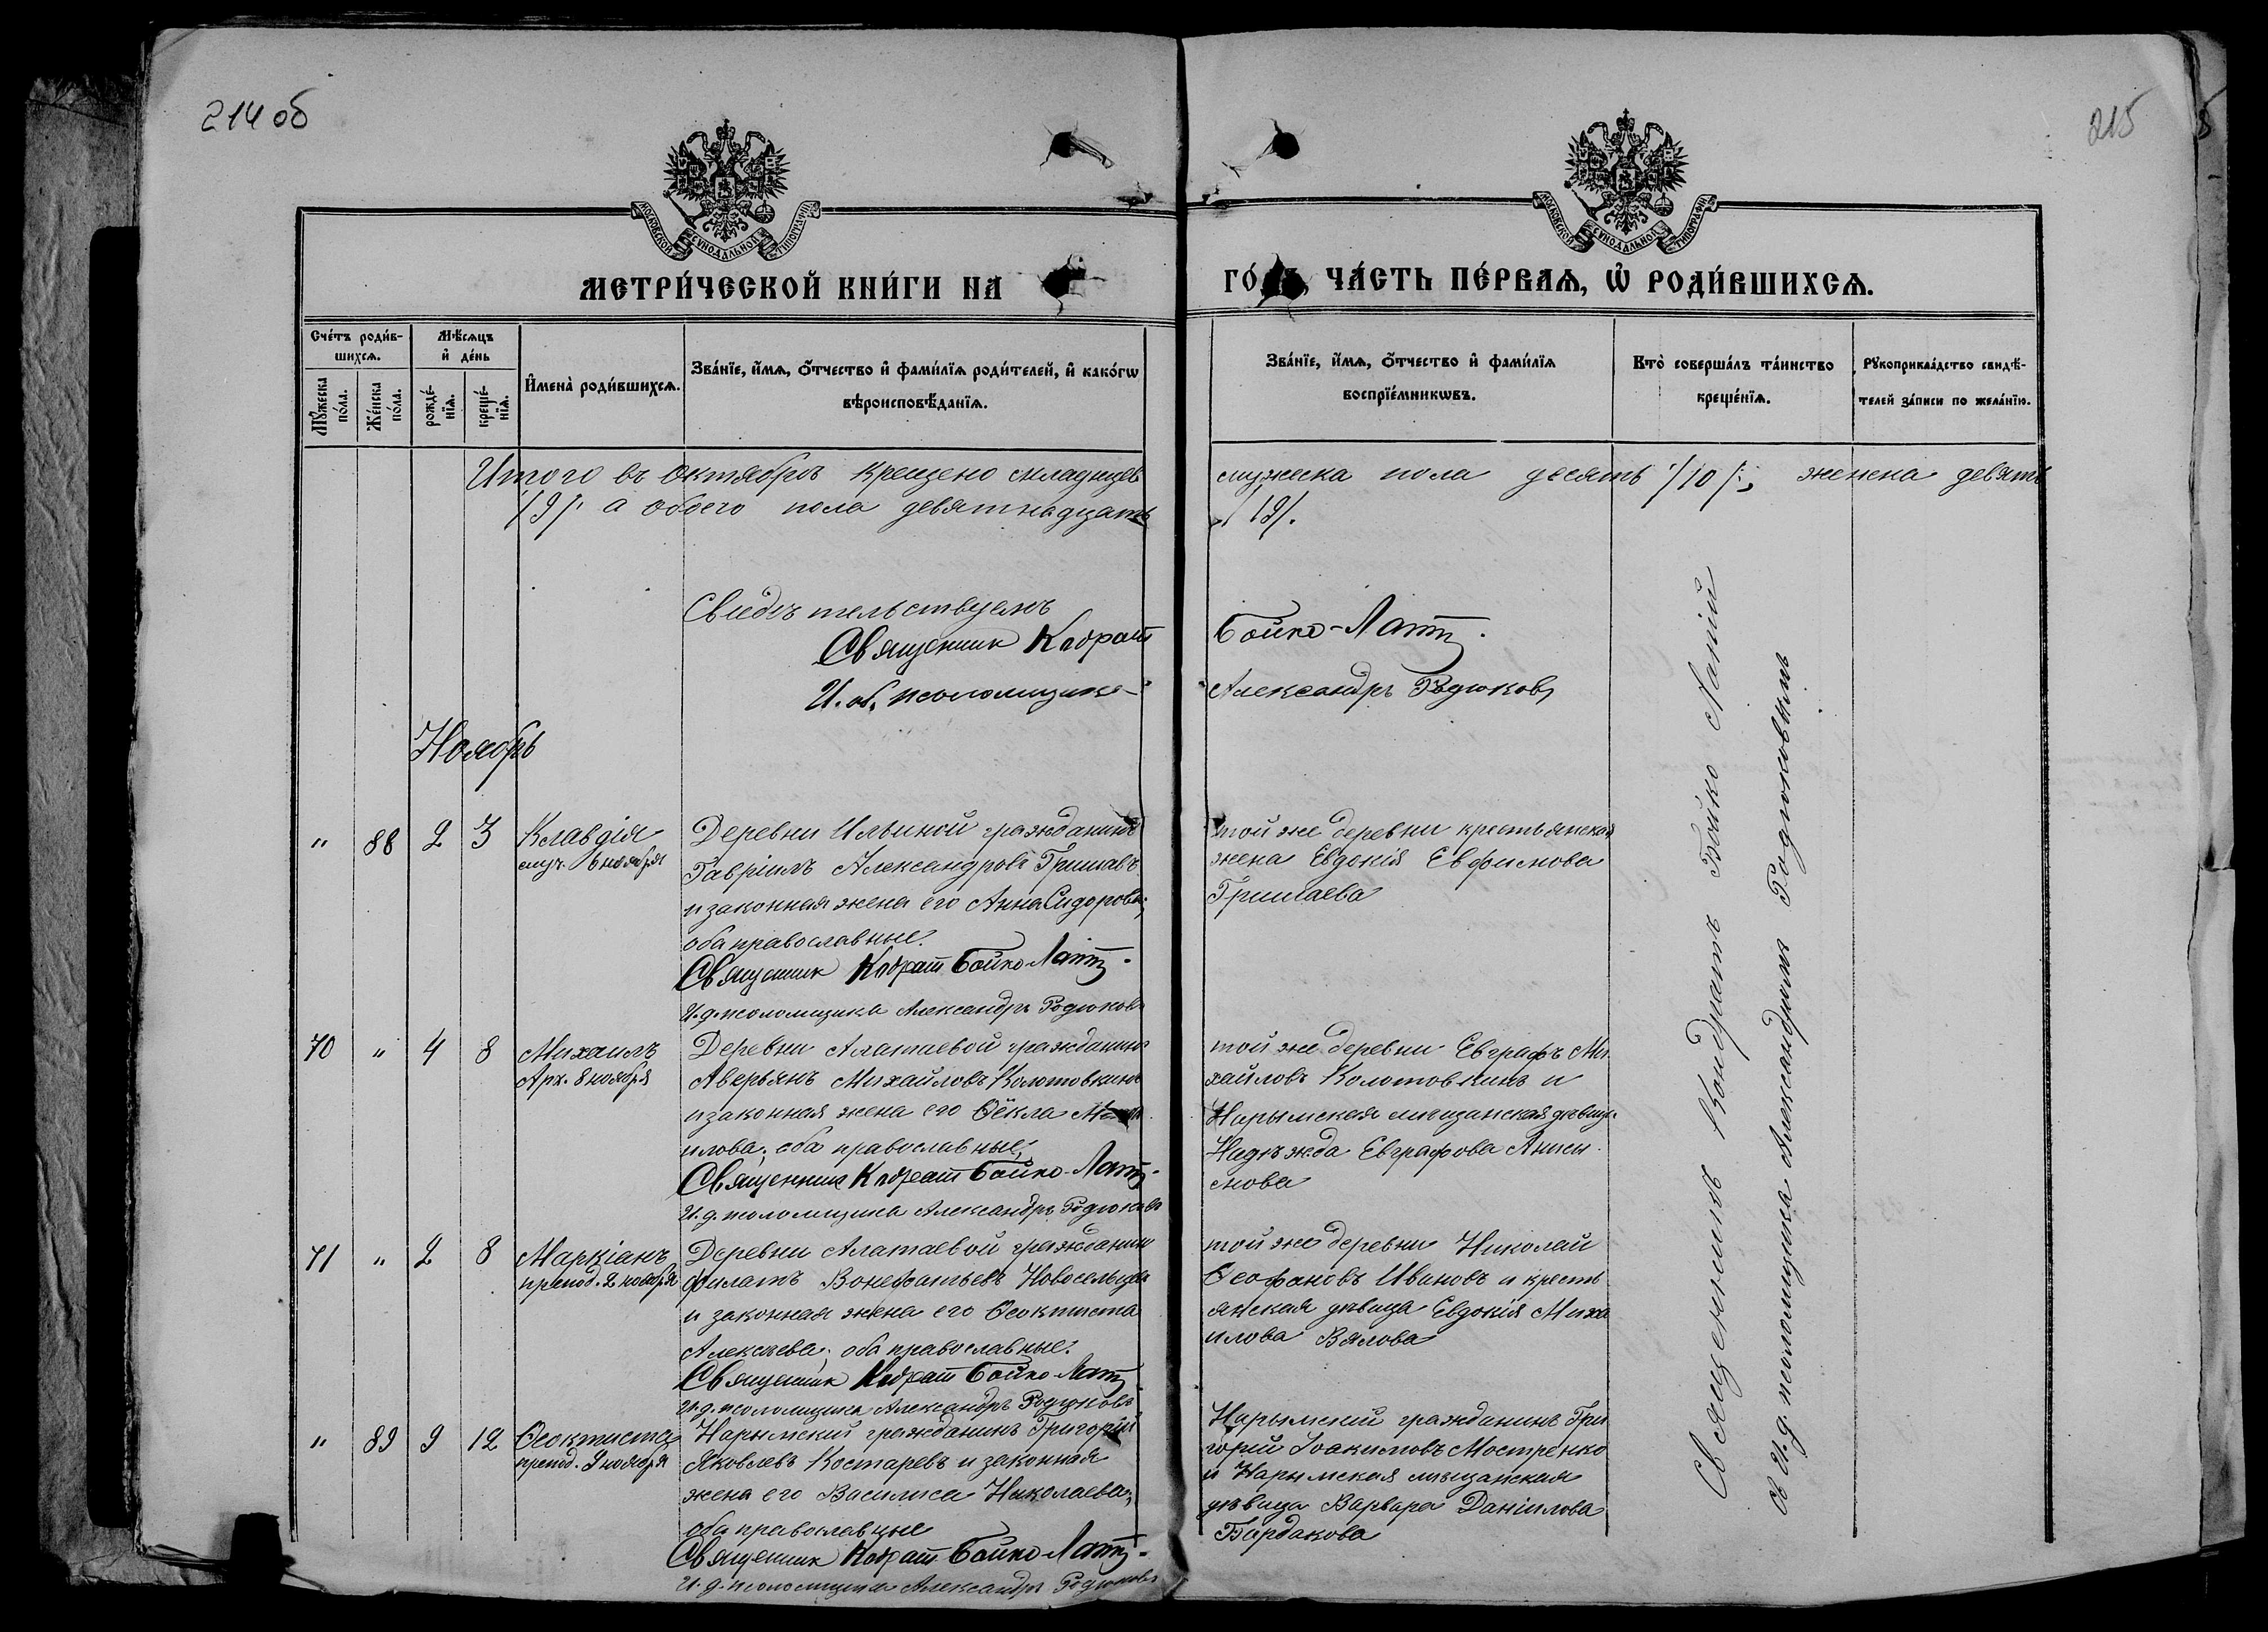 214 об
215
МОСКОВСКОЙ СѴНОДАЛЬНОЙ ТИПОГРАФІИ
МОСКОВСКОЙ СѴНОДАЛЬНОЙ ТИПОГРАФІИ
МЕТРИ́ЧЕСКОЙ КНИ́ГИ НА
ГО́ ЧА́СТЬ ПЕ́РВАѦ, Ѡ҆ РОДИ́ВШИХСѦ.
Сче́тъ роди́в-
шихсѧ.
Мꙋ́жеска
по́ла.
Же́нска
по́ла.
Мѣ́сѧцъ
и҆ де́нь
рожде́-
нїѧ.
креще́-
нїѧ.
И҆мена̀ роди́вшихсѧ.
Зва́нїе, и҆́мѧ, ѻ҆́тчество и҆ фами́лїѧ роди́телей, и҆ како́гѡ
вѣроисповѣ́данїѧ.
Зва́нїе, и҆́мѧ, ѻ҆́тчество и҆ фами́лїѧ
воспрїе́мникѡвъ.
Кто̀ соверша́лъ та́инство
креще́нїѧ.
Рꙋкоприкла́дство свидѣ́-
телей за́писи по жела́нїю.
Итого въ Октябрѣ крещено младенцев мужеска пола десять /10/, женска девять
/9/ а обоего пола девятнадцать /19/.
Свидѣтельствуемъ
Священник Кодрат Бойко-Латій.
И. об. псаломщика - Александръ Родюковъ
Ноябрь
" 88 2 3 Клавдія
муч. 6 ноября
Деревни Ильиной гражданинъ
Гавріилъ Александровъ Гришаевъ
и законная жена его Анна Сидорова;
оба православные.
Священник Кодрат Бойко-Латій.
И. д. псаломщика Александръ Родюковъ
той же деревни крестьянская
жена Евдокія Евфимова
Гришаева
70 " 4 8 Михаилъ
Арх. 8 ноября
Деревни Алатаевой гражданинъ
Аверьянъ Михайловъ Колотовкинъ
и законная жена его Ѳёкла
илова; оба православные;
Священник Кодрат Бойко-Латій.
И. д. псаломщика Александръ Родюковъ
той же деревни Евграфъ Ми-
хайловъ Колотовкинъ и
Нарымская мѣщанская дѣвица
Надѣжда Евграфова Аниси-
мова
71 " 2 8 Маркіанъ
препод. 2 ноября
Деревни Алатаевой гражданин
Филатъ Вонефатьевъ Новосельцевъ
и законная жена его Ѳеоктиста
Алексѣева; оба православные.
Священник Кодрат Бойко-Латій
И. д. псаломщика Александръ Родюковъ
той же деревни Николай
Ѳеофановъ Ивановъ и кресть
янская дѣвица Евдокія Миха
илова Вялова
" 89 9 12 Ѳеоктиста
препод. 9 ноября
Нарымский гражданинъ Григорій
Яковлевъ Костаревъ и законная
жена его Василиса Николаева;
оба православные
Священник Кодрат Бойко-Латій.
И. д. псаломщика Александръ Родюковъ
Нарымский гражданинъ Гри
горий Іоакимовъ Мостренко
и Нарымская мѣщанская
дѣвица Варвара Даніилова
Бардакова
Священникъ Кондратъ Бойко Латій
съ И. д. псаломщика Александромъ Родюковымъ